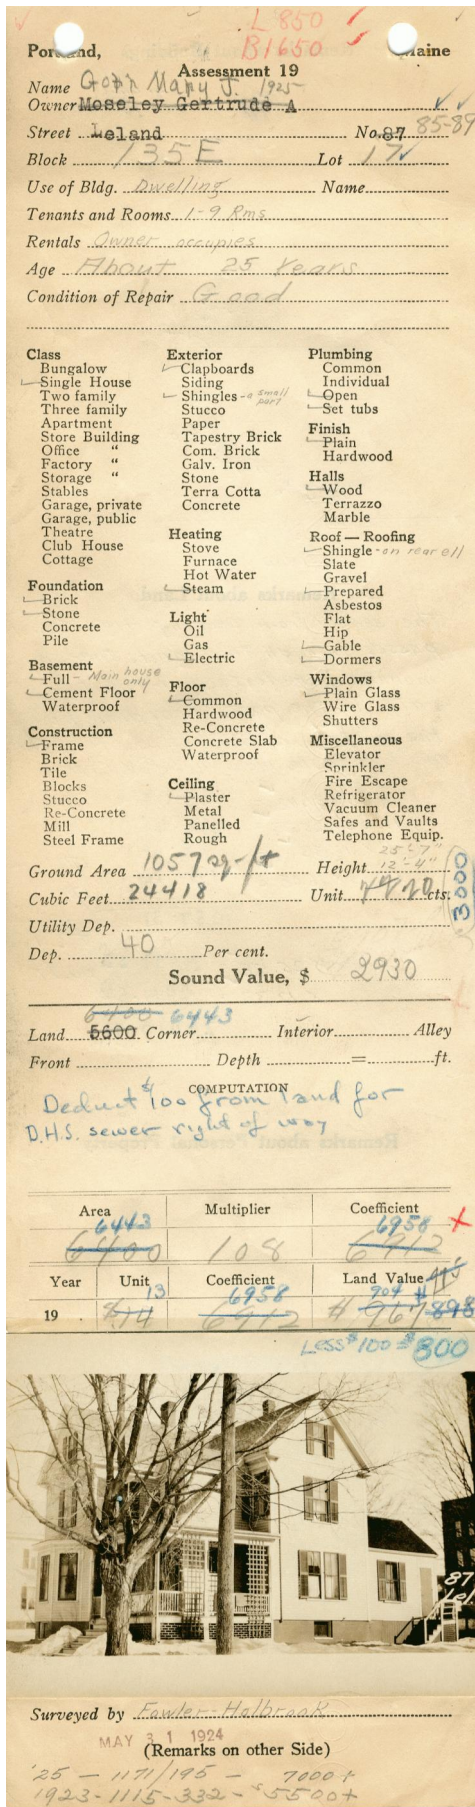 L 850
B 1650
Portland, Maine
Assessment 19
Name Gorr Mary J. 1925
Owner Moseley Gertrude A
Street Leland No. 87 85-89
Block 135E Lot 17
Use of Bldg. Dwelling Name
Tenants and Rooms 1-9 Rms
Rentals Owner occupies
Age About 25 Years
Condition of Repair Good
Class
Bungalow
Single House
Two family
Three family
Apartment
Store Building
Office "
Factory "
Storage "
Stables
Garage, private
Garage, public
Theatre
Club House
Cottage
Foundation
Brick
Stone
Concrete
Pile
Basement
Full - Main house only
Cement Floor
Waterproof
Construction
Frame
Brick
Tile
Blocks
Stucco
Re-Concrete
Mill
Steel Frame
Exterior
Clapboards
Siding
Shingles - a small part
Stucco
Paper
Tapestry Brick
Com. Brick
Galv. Iron
Stone
Terra Cotta
Concrete
Heating
Stove
Furnace
Hot Water
Steam
Light
Oil
Gas
Electric
Floor
Common
Hardwood
Re-Concrete
Concrete Slab
Waterproof
Ceiling
Plaster
Metal
Panelled
Rough
Plumbing
Common
Individual
Open
Set tubs
Finish
Plain
Hardwood
Halls
Wood
Terrazzo
Marble
Roof — Roofing
Shingle - on rear ell
Slate
Gravel
Prepared
Asbestos
Flat
Hip
Gable
Dormers
Windows
Plain Glass
Wire Glass
Shutters
Miscellaneous
Elevator
Sprinkler
Fire Escape
Refrigerator
Vacuum Cleaner
Safes and Vaults
Telephone Equip.
25'-7"
Ground Area 1057 sq-ft Height 12'-4"
Cubic Feet 24418 Unit 20 cts.
3000
Utility Dep.
Dep. 40 Per cent.
Sound Value, $ 2930
6400 6443
Land 5600 Corner Interior Alley
Front Depth = ft.
COMPUTATION
Deduct $100 from land for
D.H.S. sewer right of way
Area Multiplier Coefficient
6443 6958
6400 108 6912
Year Unit Coefficient Land Value
13 6958 904
19 14 6912 $ 967 898
Less $100 = 800
87
Lel.
Surveyed by Fowler-Holbrook
MAY 31 1924
(Remarks on other Side)
'25 - 1171/195 - 7000+
1923-1115-332- $5500+